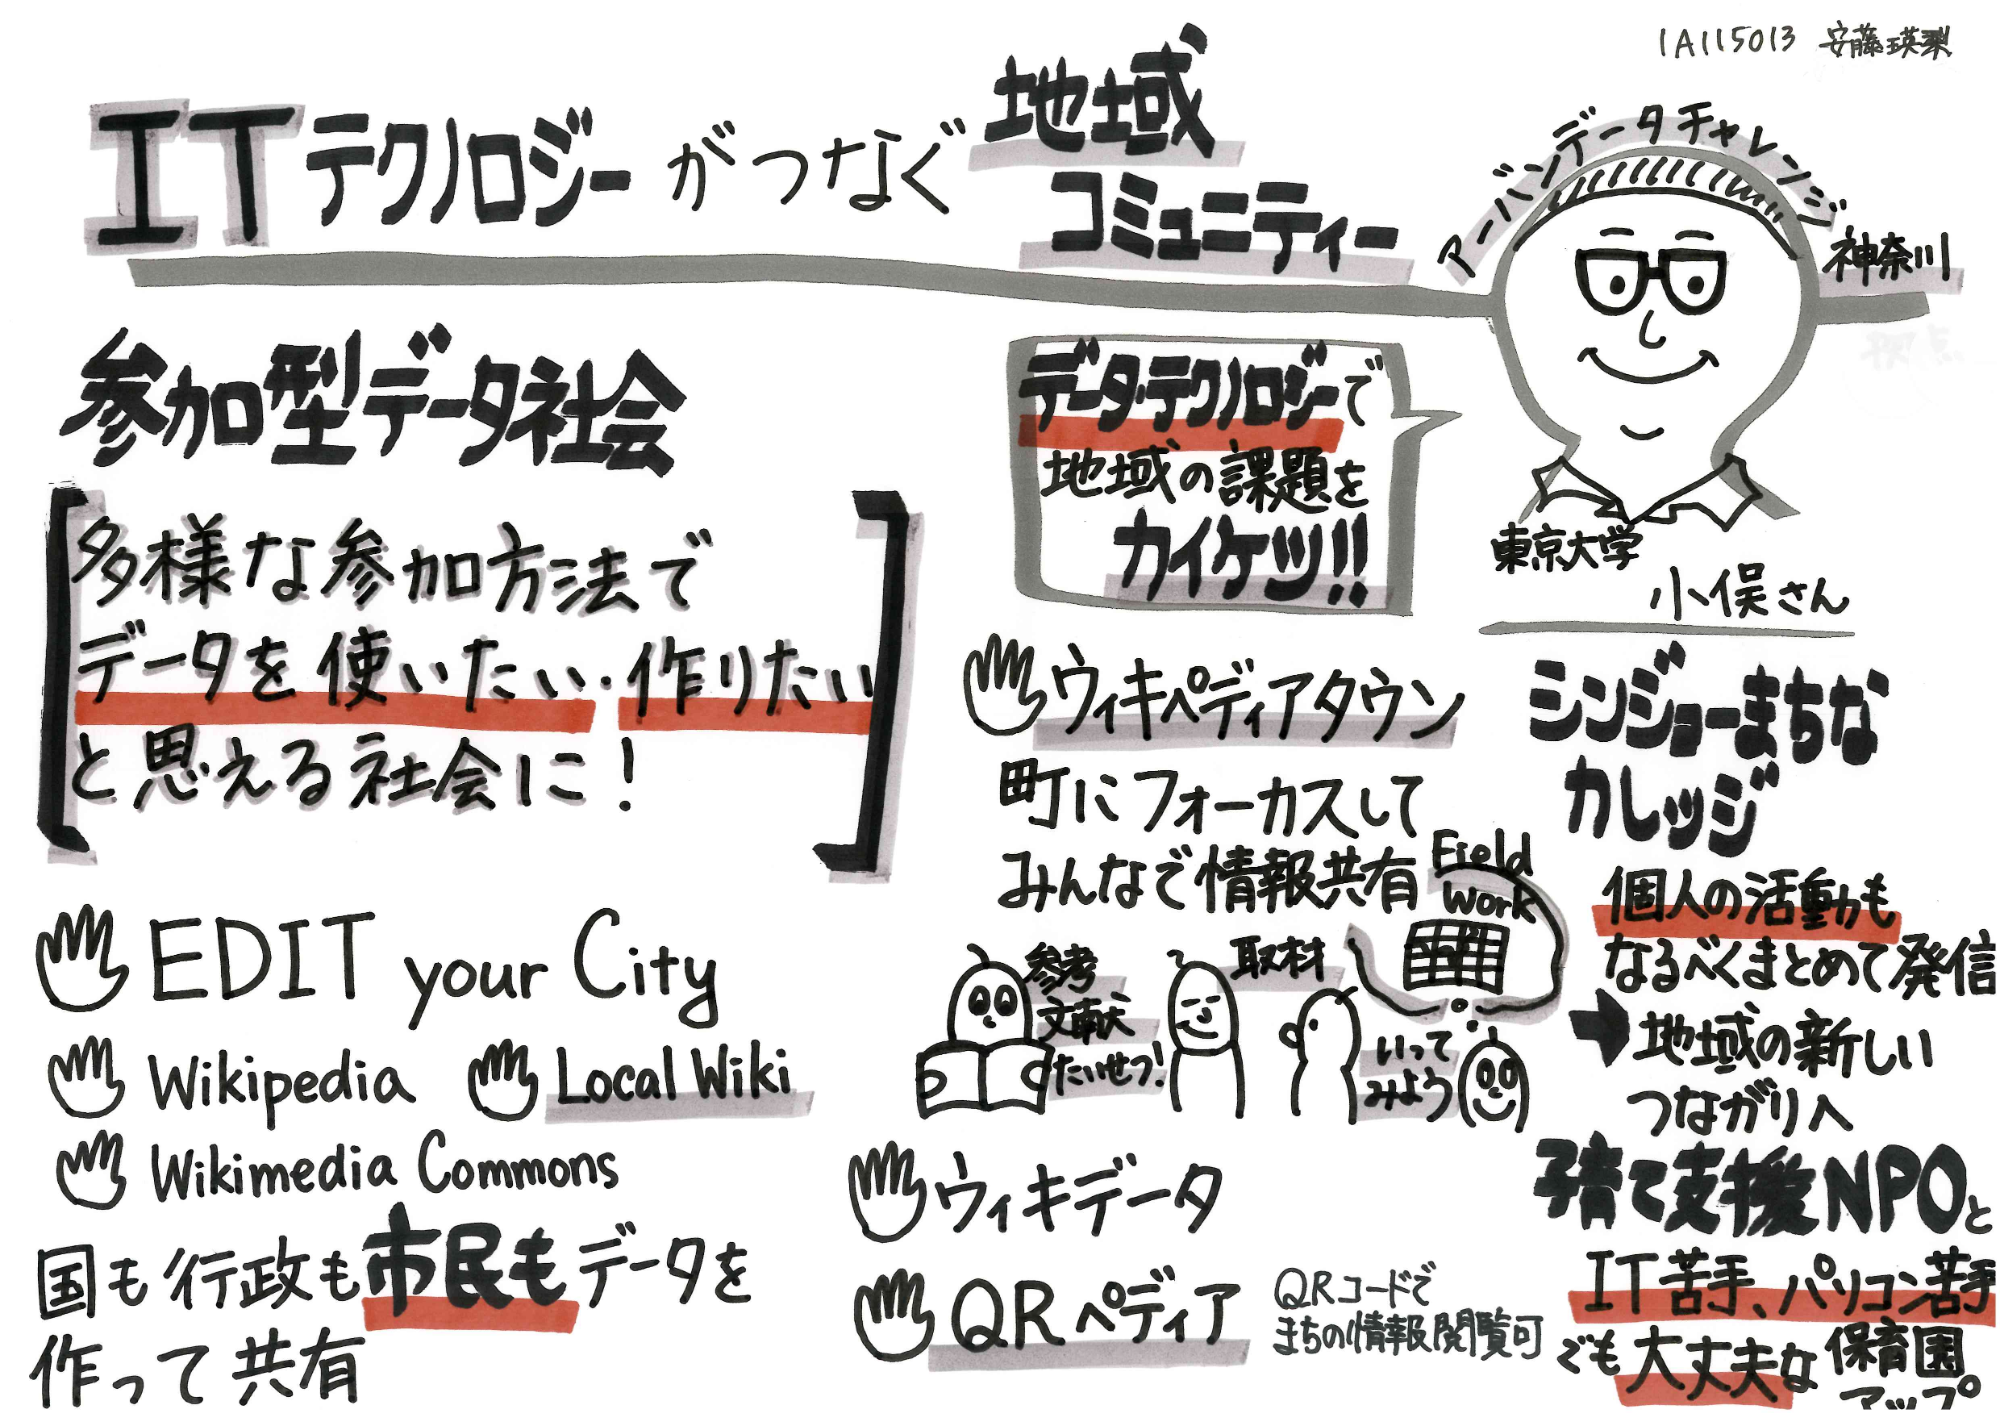 1A115013 安藤瑛梨
ITテクノロジーがつなぐ地域
コミュニティー
アーバンデータチャレンジ
神奈川
参加型データ社会
多様な参加方法で
データを使いたい・作りたい
と思える社会に!
データ・テクノロジーで
地域の課題を
カイケツ!!
東京大学
小俣さん
EDIT your City
Wikipedia
Local Wiki
Wikimedia Commons
国も行政も市民もデータを
作って共有
ウィキペディアタウン
町にフォーカスして
みんなで情報共有
Field
Work
参考
文献
たいせつ!
取材
いって
みよう
ウィキデータ
QRペディア
QRコードで
まちの情報閲覧可
シンジョーまちな
カレッジ
個人の活動も
なるべくまとめて発信
➡地域の新しい
つながりへ
子育て支援NPOと
IT苦手、パソコン苦手
でも大丈夫な保育園
マップ